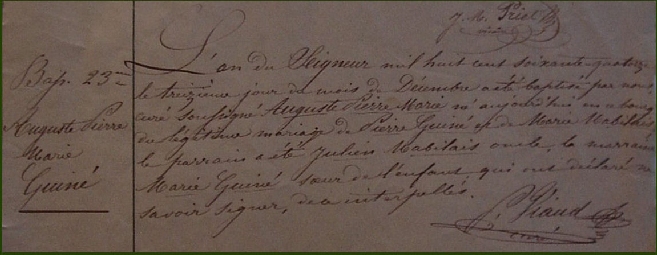 J. M. Priet
Bap. 23me
Auguste Pierre
Marie
Guiné
L'an du Seigneur mil huit cent soixante quatorze
le treizième jour du mois de Décembre a été baptisé par nous
curé soussigné Auguste Pierre Marie né aujourd'hui en ce bourg
du légitime mariage de Pierre Guiné et de Marie Mabilais
le parrain a été Julien Mabilais oncle, la marraine
Marie Guiné sœur de l'enfant, qui ont déclaré ne
savoir signer, de ce interpellés.
Piaud
curé